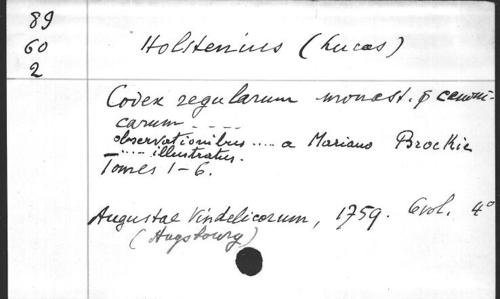 89
60
2
Holstenius (Lucas)
Codex regularum monast. & canoni-
carum ----
observationibus .... a Mariano Brockie
.... illustratus.
Tomes 1-6.
Augustae Vindelicorum, 1759. 6 vol. 4°
(Augsbourg)